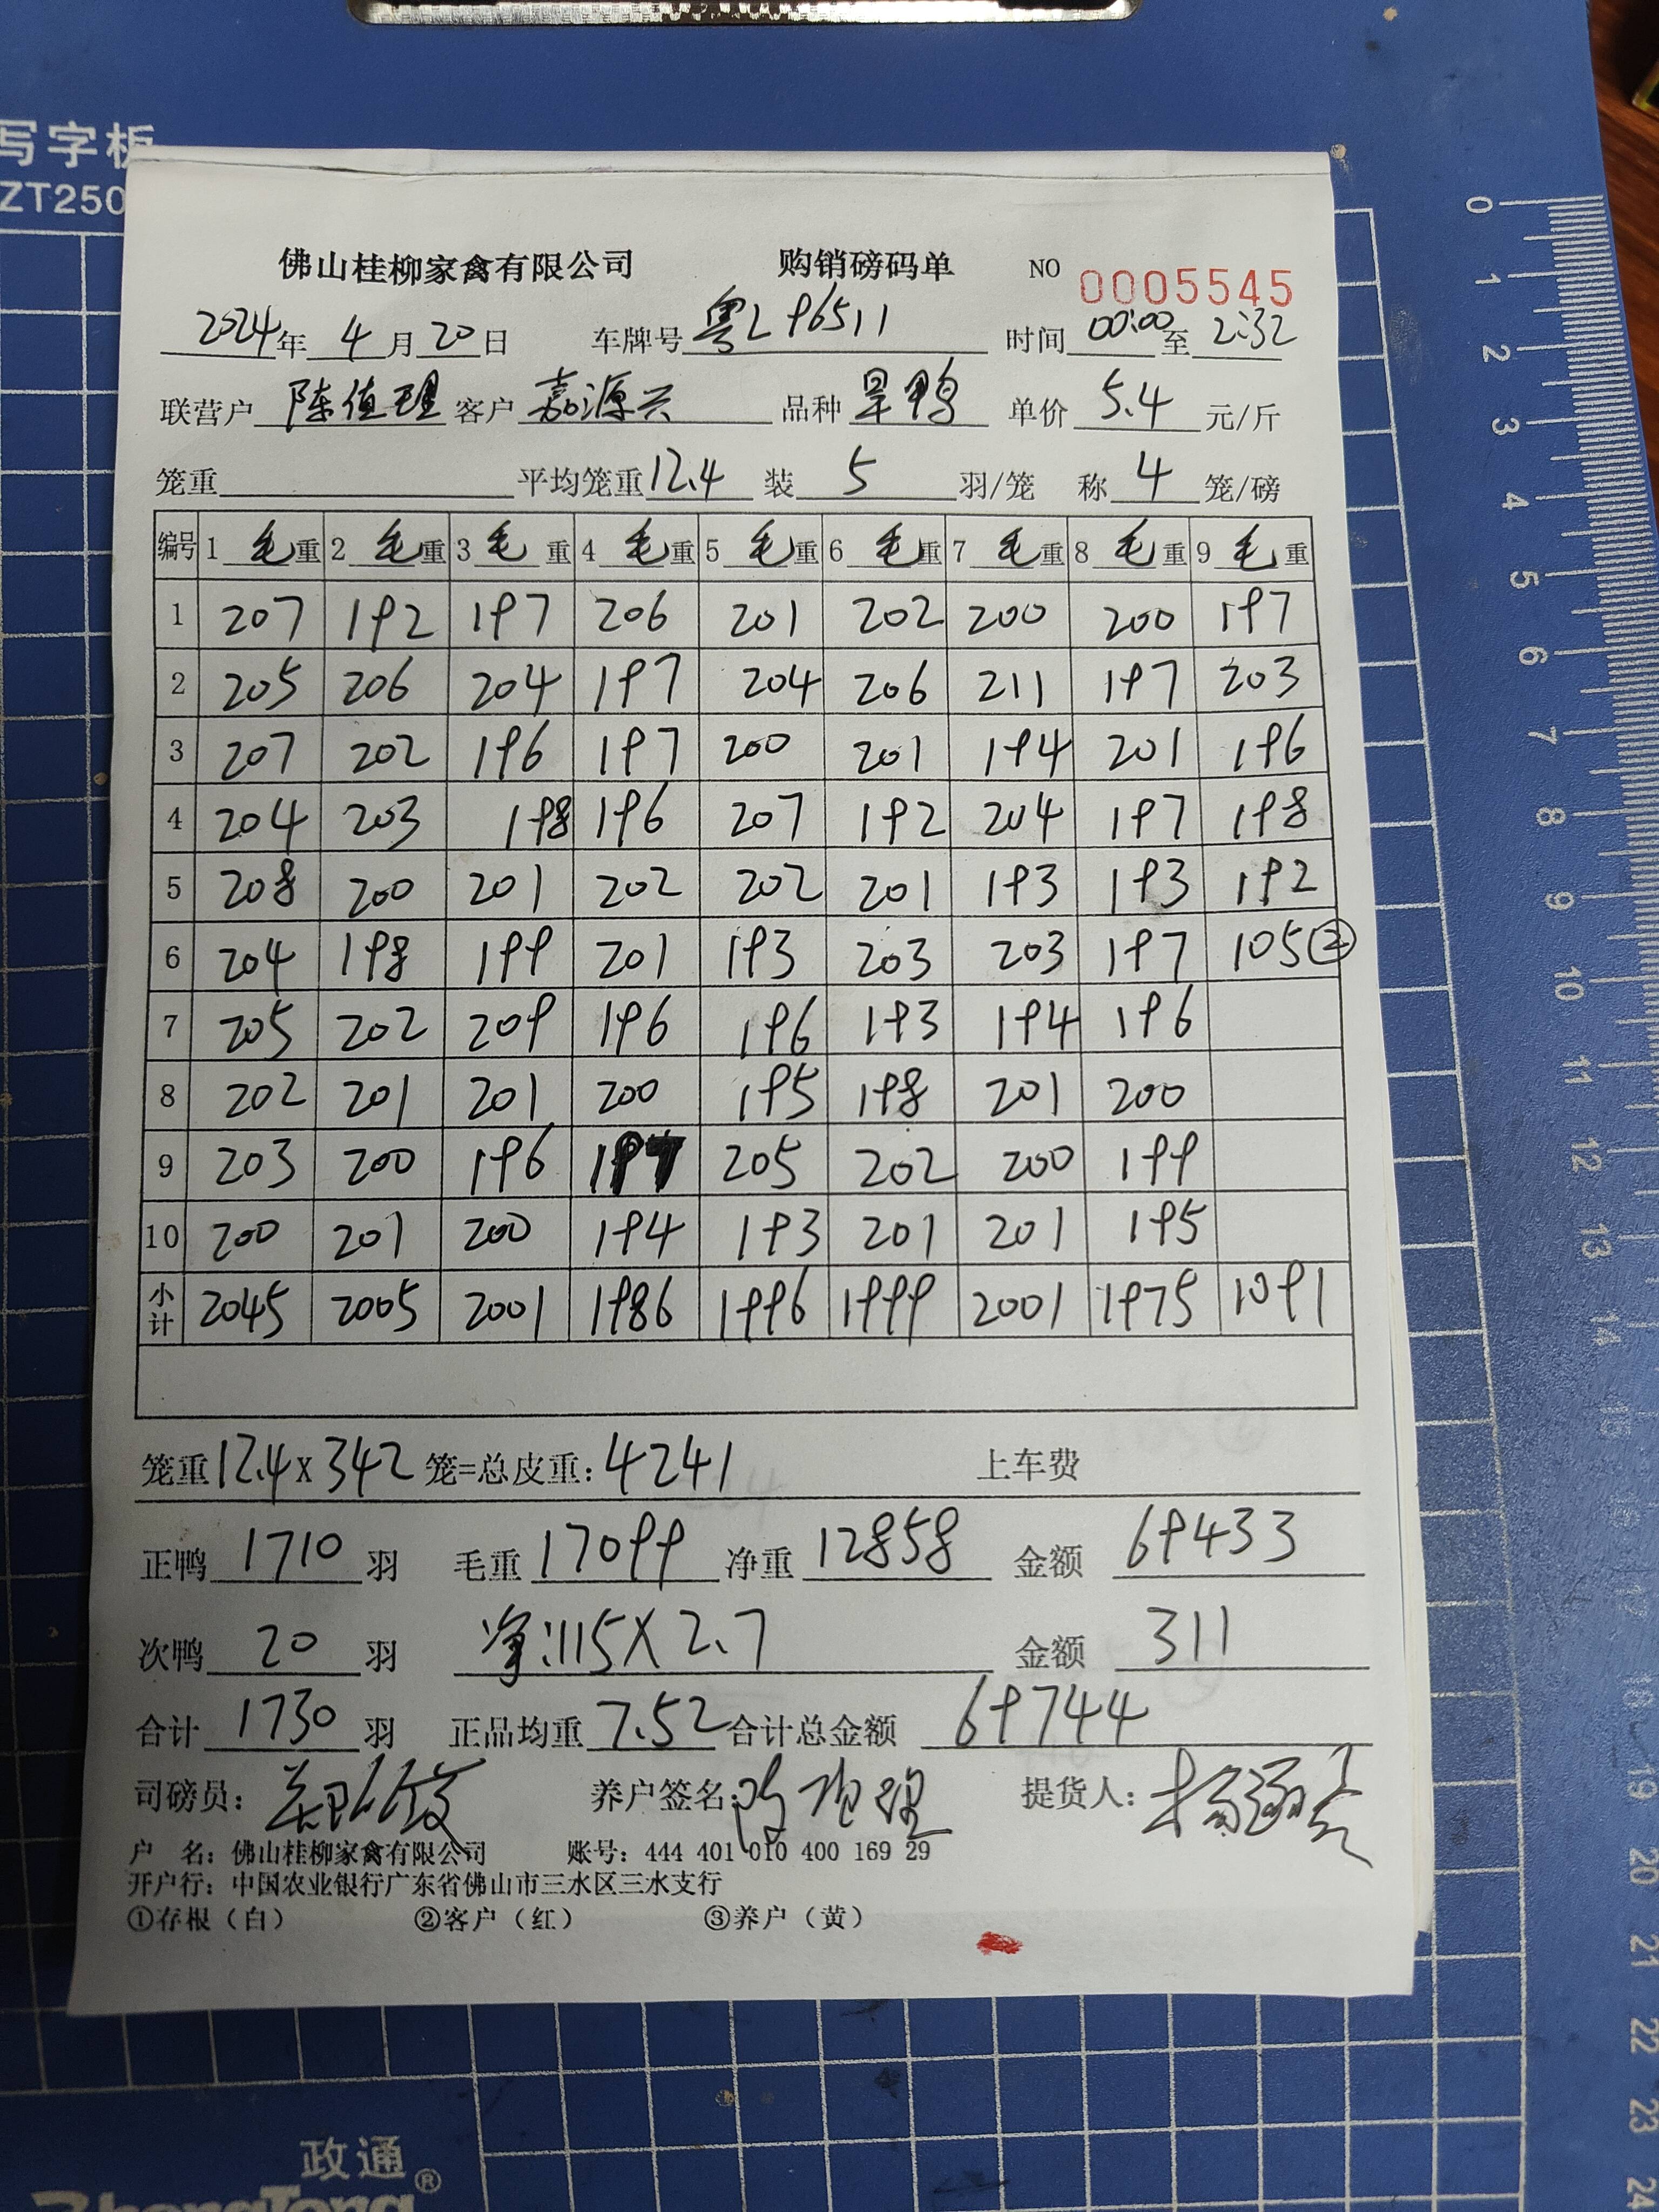 写字板
ZT250
佛山桂柳家禽有限公司 购销磅码单 NO 0005545
2024年 4月20日 车牌号 粤L 96511 时间 00:00 至 2:32
联营户 陈值理 客户 嘉源兴 品种 旱鸭 单价 5.4 元/斤
笼重 平均笼重 12.4 装 5 羽/笼 称 4 笼/磅
编号 1 毛重 2 毛重 3 毛重 4 毛重 5 毛重 6 毛重 7 毛重 8 毛重 9 毛重
1 207 192 197 206 201 202 200 200 197
2 205 206 204 197 204 206 211 197 203
3 207 202 196 197 200 201 194 201 196
4 204 203 198 196 207 192 204 197 198
5 208 200 201 202 202 201 193 193 192
6 204 198 199 201 193 203 203 197 105②
7 205 202 209 196 196 193 194 196
8 202 201 201 200 195 198 201 200
9 203 200 196 197 205 202 200 199
10 200 201 200 194 193 201 201 195
小计 2045 2005 2001 1986 1996 1999 2001 1975 1091
笼重 12.4 x 342 笼=总皮重: 4241 上车费
正鸭 1710 羽 毛重 17099 净重 12858 金额 69433
次鸭 20 羽 净:115X2.7 金额 311
合计 1730 羽 正品均重 7.52 合计总金额 69744
司磅员: 养户签名: 陈值理 提货人:
户 名: 佛山桂柳家禽有限公司 账号: 444 401 010 400 169 29
开户行: 中国农业银行广东省佛山市三水区三水支行
①存根（白） ②客户（红） ③养户（黄）
政通®
ZhengTong
0 1 2 3 4 5 6 7 8 9 10 11 12 13 14 15 16 17 18 19 20 21 22 23 24